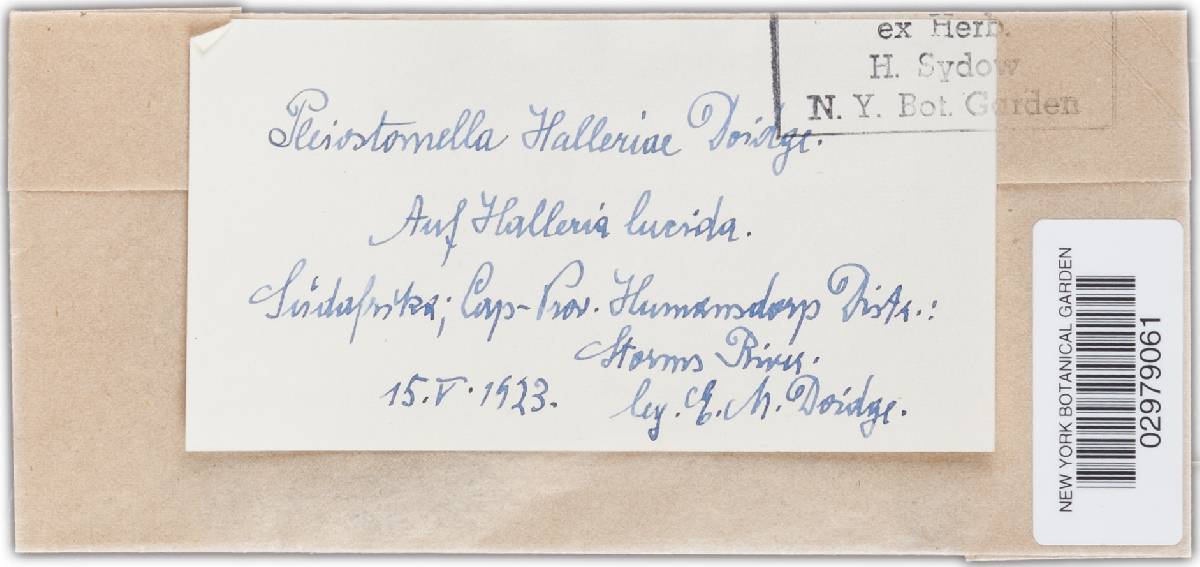 ex Herb.
H. Sydow
N. Y. Bot. Garden
Pleiostomella Halleriae Doidge.
Auf Halleria lucida.
Südafrika; Cap-Prov. Humansdorp Distr.:
Storms River.
15.V.1923.
leg. E. M. Doidge.
NEW YORK BOTANICAL GARDEN
02979061